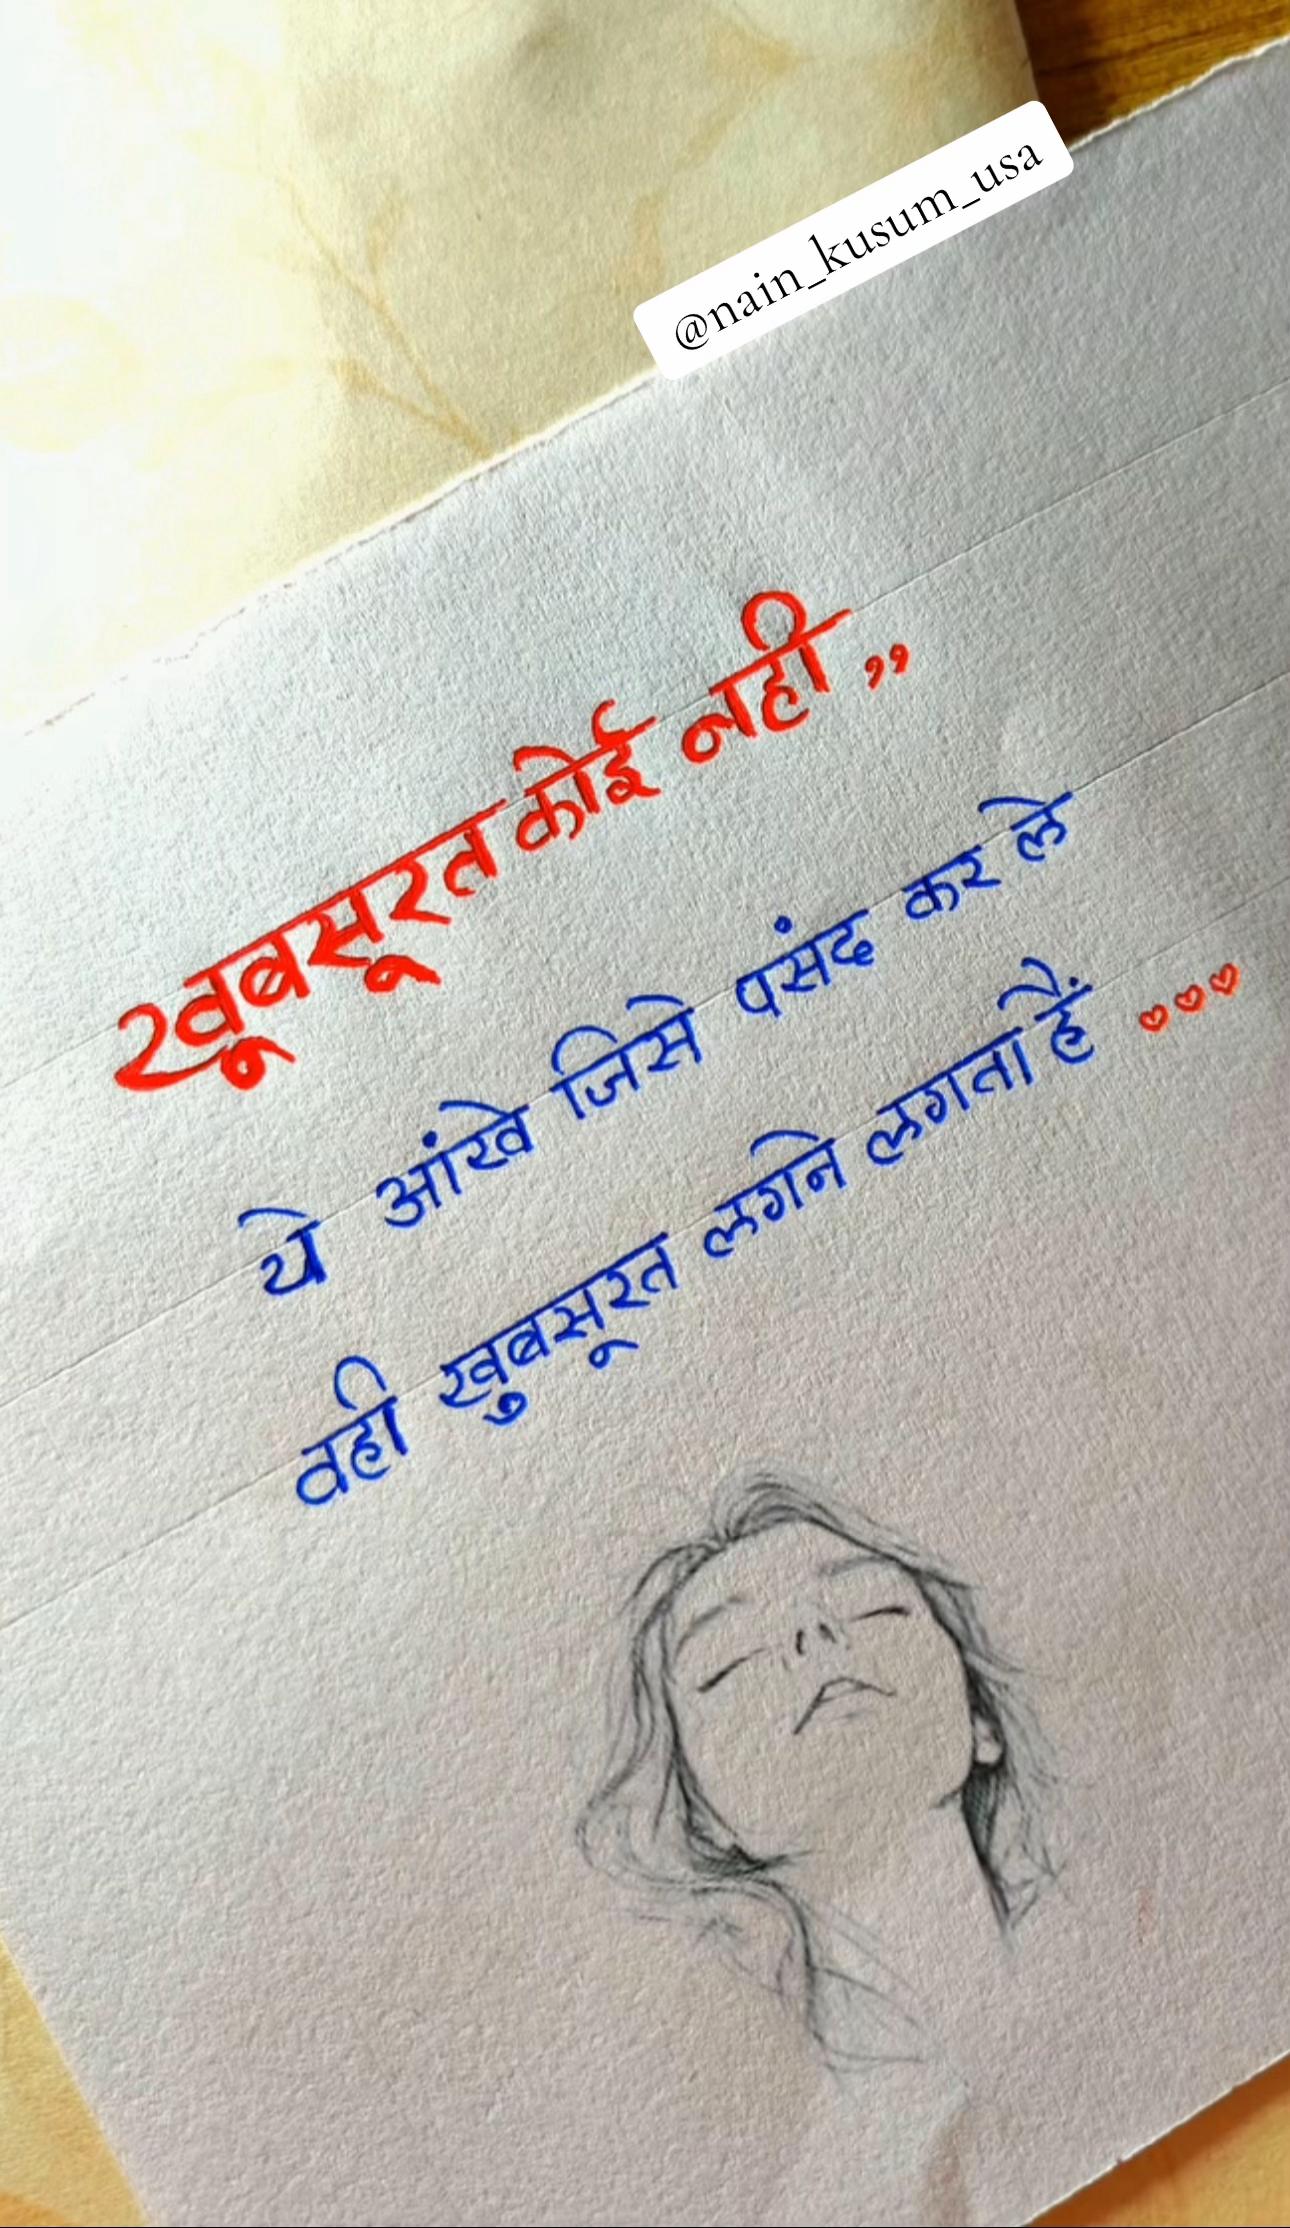 @nain_kusum_usa
खूबसूरत कोई नही ,,
ये आंखे जिसे पसंद कर ले
वही खुबसूरत लगने लगता हैं